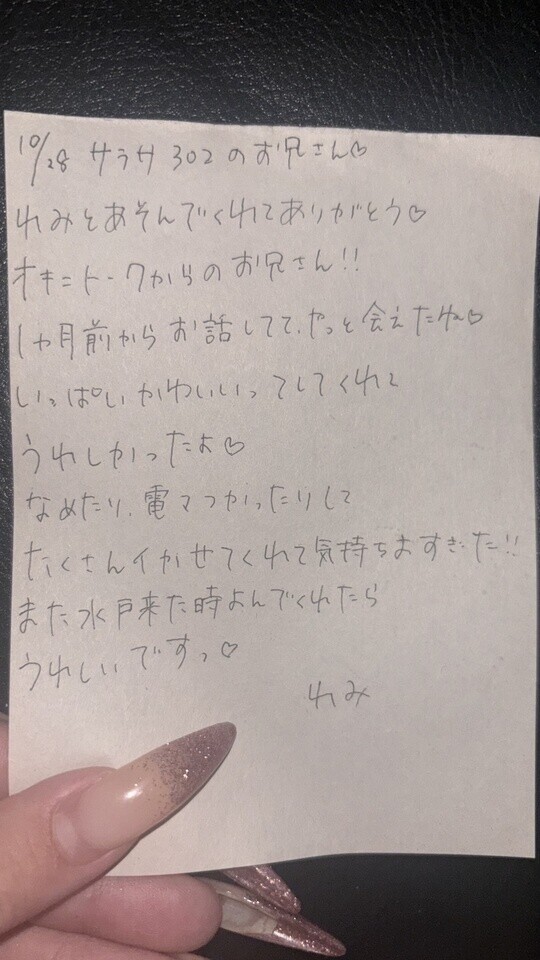 10/28 サラサ 302 のお兄さん♡
れみとあそんでくれてありがとう♡
オキニトークからのお兄さん!!
1ヵ月前からお話してて、やっと会えたね♡
いっぱいかわいいってしてくれて
うれしかったよ♡
なめたり、電マつかったりして
たくさんイかせてくれて気持ちよすぎた!!
また水戸来た時よんでくれたら
うれしいですっ♡
れみ